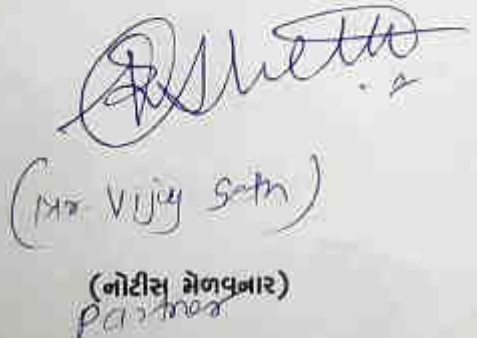 Sheth
(Mr. Vijay Seth)
(નોટીસ મેળવનાર)
Partner